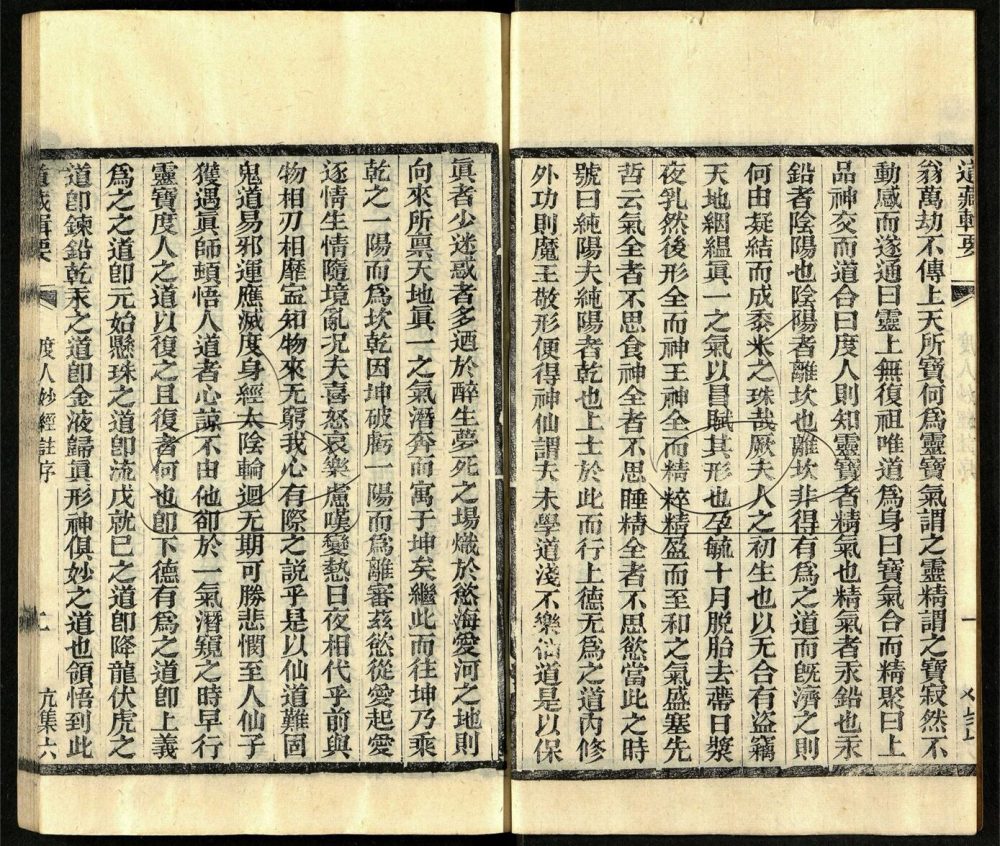 道藏輯要
翁萬劫不傳上天所寶何爲靈寶氣謂之靈精謂之寶寂然不
動感而遂通曰靈上無復祖唯道爲身曰寶氣合而精聚曰上
品神交而道合曰度人則知靈寶者精氣也精氣者汞鉛也汞
鉛者陰陽也陰陽者離坎也離坎非得有爲之道而旣濟之則
何由凝結而成黍米之珠哉厥夫人之初生也以无合有盜竊
天地絪縕眞一之氣以昌賦其形也孕毓十月脫胎去蔕日漿
夜乳然後形全而神王神全而精粹精盈而至和之氣盛塞先
哲云氣全者不思食神全者不思睡精全者不思慾當此之時
號曰純陽夫純陽者乾也上士於此而行上德无爲之道內修
外功則魔王敬形便得神仙謂夫未學道淺不樂仙道是以保
眞者少迷惑者多迺於醉生夢死之場熾於慾海愛河之地則
向來所禀天地眞一之氣潛奔而寓于坤矣繼此而往坤乃乘
乾之一陽而爲坎乾因坤破虧一陽而爲離審玆慾從愛起愛
逐情生情隨境亂況夫喜怒哀樂慮嘆變慹日夜相代乎前與
物相刃相靡寍知物來无窮我心有際之說乎是以仙道難固
鬼道易邪運應滅度身經太陰輪迴无期可勝悲憫至人仙子
獲遇眞師頓悟人道者心諒不由他卻於一氣潛窺之時早行
靈寶度人之道以復之且復者何也卽下德有爲之道卽上義
爲之之道卽元始懸珠之道卽流戊就巳之道卽降龍伏虎之
道卽鍊鉛乾汞之道卽金液歸眞形神俱妙之道也領悟到此
道藏輯要
度人妙經註序
亢集六